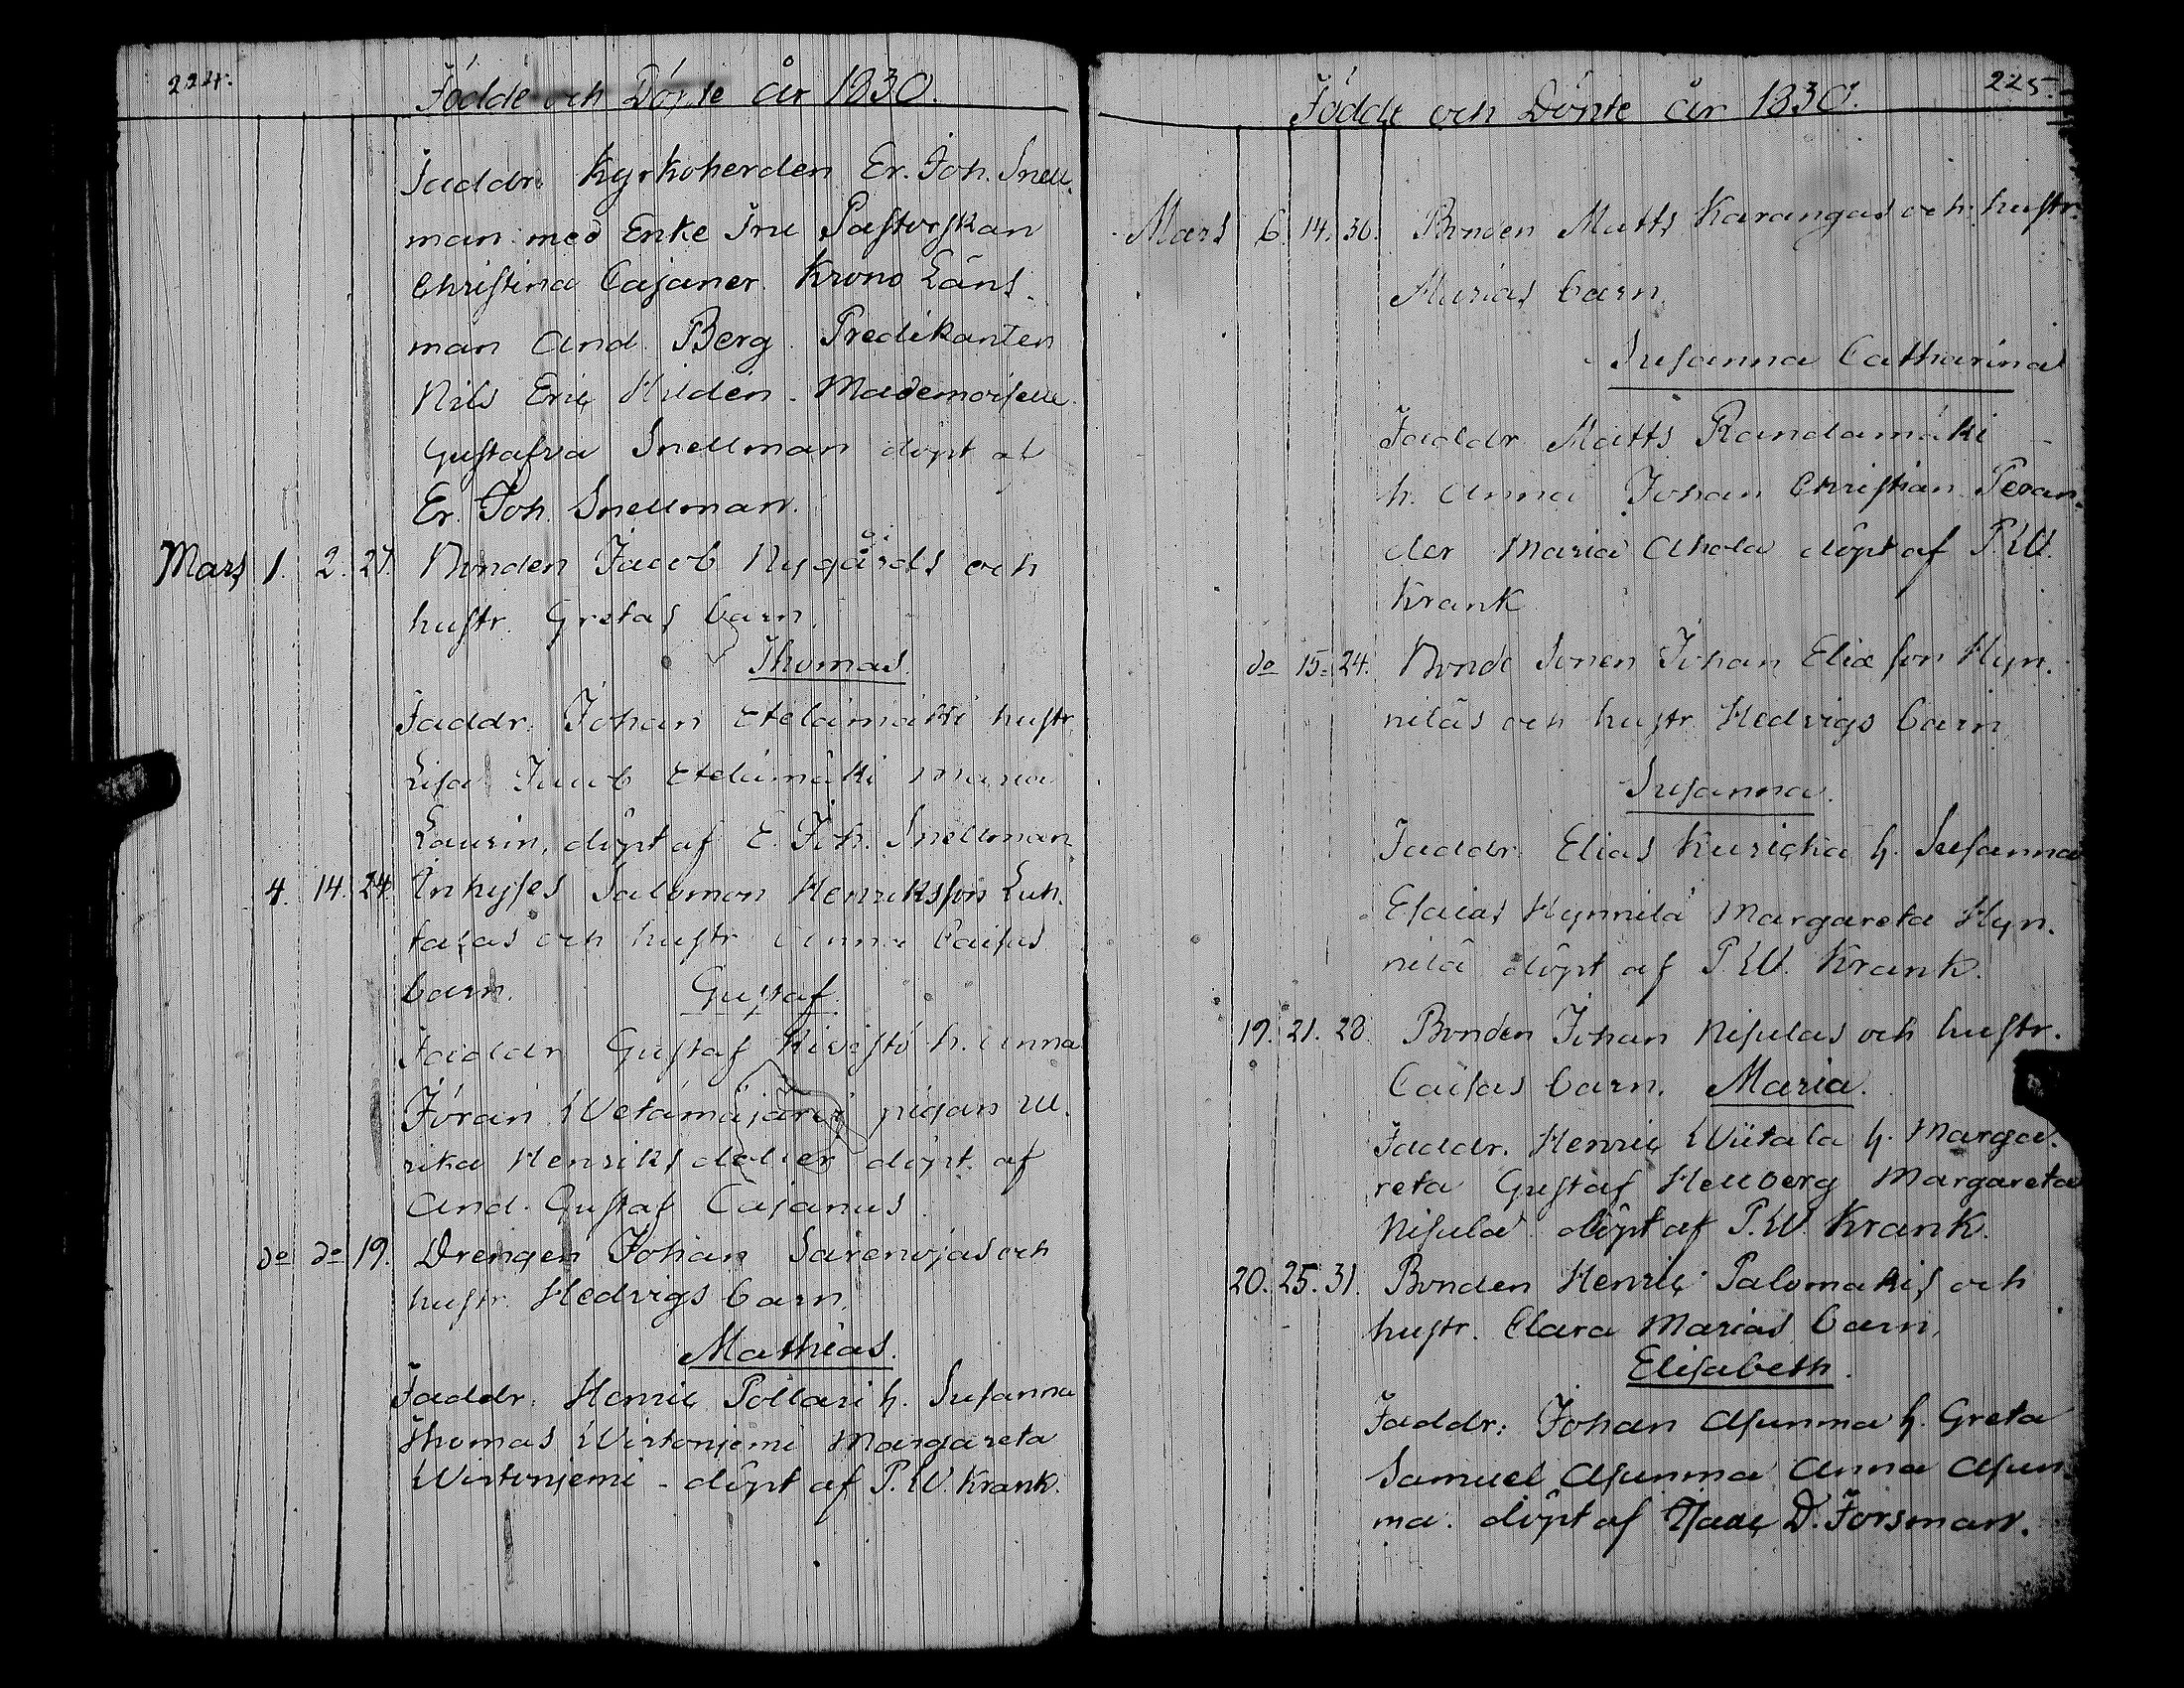 224.
Födde och Döpte år 1830.
Faddr. Kyrkoherden Er. Joh. Snell-
man med Enke Fru Pastorskan
Christina Cajaner. Krono Läns-
man And. Berg. Predikanten
Nils Eric Hilden. Mademoiselle
Gustafva Snellman döpt af
Er. Joh. Snellman.
Mars 1. 2. 27. Bonden Jacob Nygårds och
hustr. Gretas barn.
Thomas.
Faddr. Johan Etelämäki hustr.
Lisa Jacob Etelämäki Maria
Laurin, döpt af E. Joh. Snellman
4. 14. 24. Inhyses Salomon Henriksson Luh-
tasas och hustr. Anna Caisas
barn. Gustaf.
Faddr Gustaf Kivistö h. Anna
Jöran Wetämäjärvi pigan Ul-
rika Henriks dotter döpt af
And. Gustaf Cajanus.
do do 19. Drengen Johan Sarenojas och
hustr. Hedvigs barn.
Mathias.
Faddr. Henric Pollari h. Susanna
Thomas Wirtoniemi Margareta
Wirtoniemi - döpt af P. W. Krank.
225.
Födde och Döpte år 1830.
Mars 6. 14. 36. Bonden Matts Karangas och hustr.
Marias barn.
Susanna Catharina
Faddr Matts Randamäki
h. Anna Johan Christian Peran-
der Maria Ahola döpt af P. W.
Krank
do 15. 24. Bonde Sonen Johan Eliæ son Hyn-
niläs och hustr. Hedvigs barn
Susanna.
Faddr. Elias Kuricka h. Susanna
Esaias Hynnilä Margareta Hyn-
nilä döpt af P. W. Krank.
19. 21. 28. Bonden Johan Nisulas och hustr.
Caisas barn. Maria.
Faddr. Henric Wiitala h. Marga-
reta Gustaf Hellberg Margareta
Nisula döpt af P. W. Krank.
20. 25. 31. Bonden Henric Palomäkis och
hustr. Clara Marias barn.
Elisabeth.
Faddr: Johan Asunma h. Greta
Samuel Asunma Anna Asun-
ma. döpt af Isaac D. Forsman.